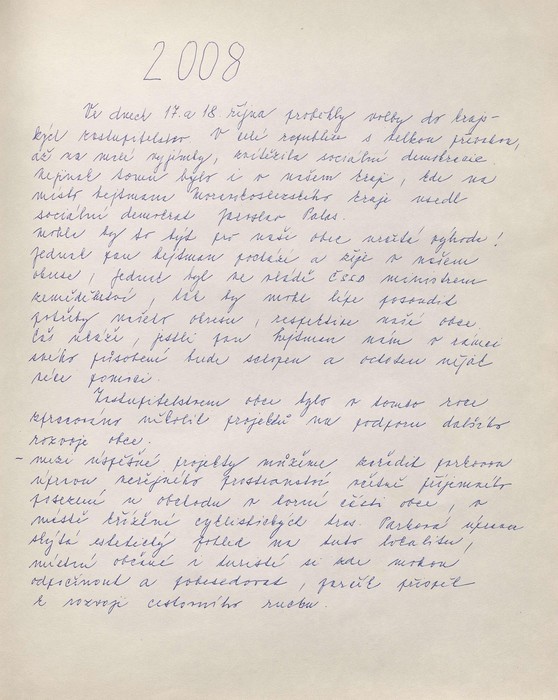 2008
Ve dnech 17. a 18. října proběhly volby do kraj-
ských zastupitelstev. V celé republice s velkou převahou,
až na menší vyjímky, zvítězila sociální demokracie.
Nejinak tomu bylo i v našem kraji, kde na
místo hejtmana Moravskoslezského kraje usedl
sociální demokrat Jaroslav Palas.
Mohla by to být pro naši obec veliká výhoda!
Jednak pan hejtman pochází a žije v našem
okrese, jednak byl ve vládě ČSSD ministrem
zemědělství, tak by mohl lépe posoudit
potřeby našeho okresu, respektive naší obce.
Čas ukáže, jestli pan hejtman nám v rámci
svého působení bude schopen a ochoten nějak
více pomoci.
Zastupitelstvem obce bylo v tomto roce
zpracováno několik projektů na podporu dalšího
rozvoje obce.
- mezi úspěšné projekty můžeme zařadit parkovou
úpravu veřejného prostranství včetně příjemného
posezení u obchodu v horní části obce, v
místě křížení cyklistických tras. Parková úprava
skýtá estetický pohled na tuto lokalitu,
místní občané i turisté si zde mohou
odpočinout a pobesedovat, což přispět
k rozvoji cestovního ruchu.